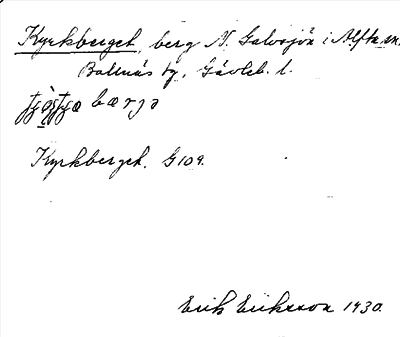 Kyrkberget, berg N. Galvsjön i Alfta sn,
Bollnäs tg, Gävleb. l.
bærjə
Kyrkberget. G 109.
Erik Eriksson 1930.